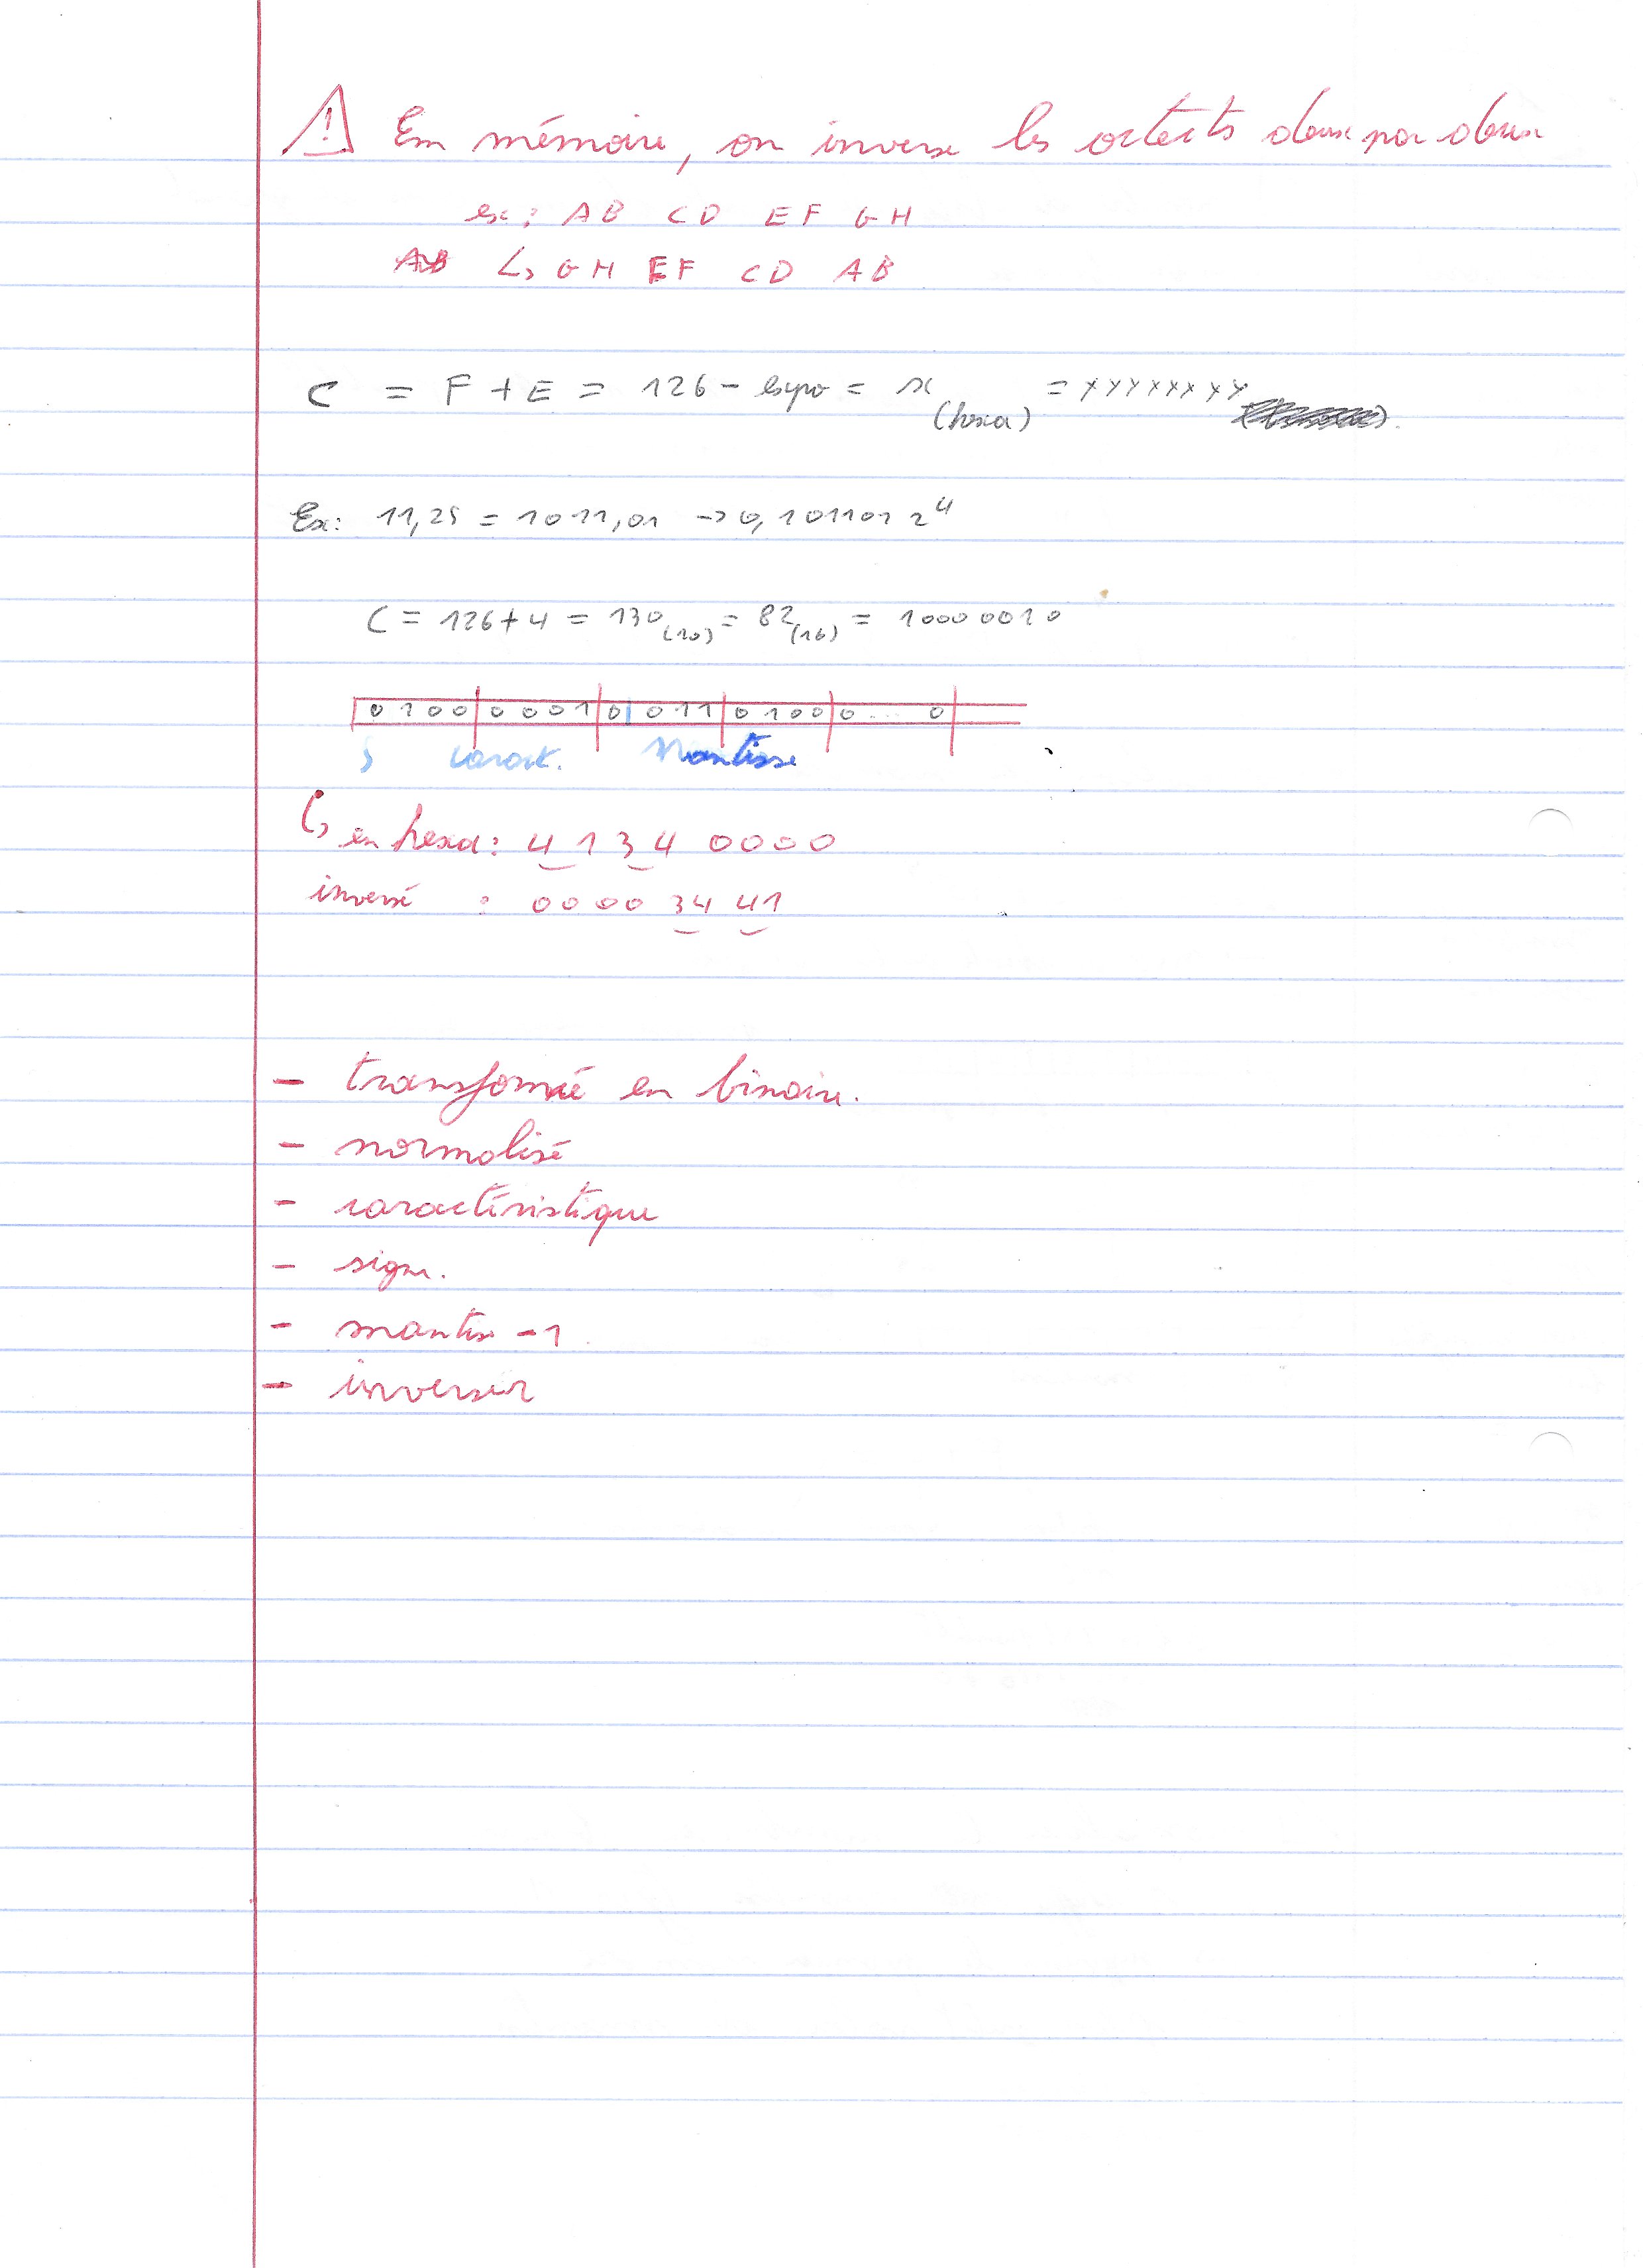 ⚠ En mémoire, on inverse les octects deux par deux
ex : AB CD EF GH
AB ↳ GH EF CD AB
C = F + E = 126 - expo = x (hexa) = xxxxxxxx
Ex: 11,25 = 1011,01 -> 0,101101 2^4
C = 126 + 4 = 130 (10) = 82 (16) = 1000 0010
0 1 0 0 | 0 0 0 1 | 0 | 0 1 1 | 0 1 0 0 | 0 ... 0 |
S caract. Mantisse
↳ en hexa : 4 1 3 4 0000
inversé : 00 00 34 41
- transformé en binaire.
- normalisé
- caractéristique
- signe.
- mantisse -1
- inverser